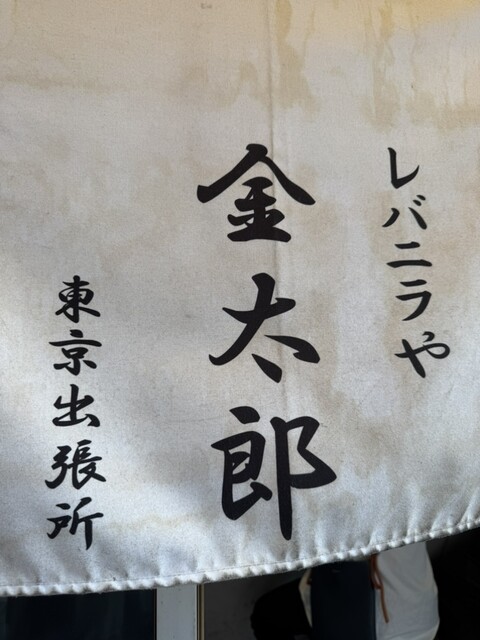 レバニラや
金太郎
東京出張所